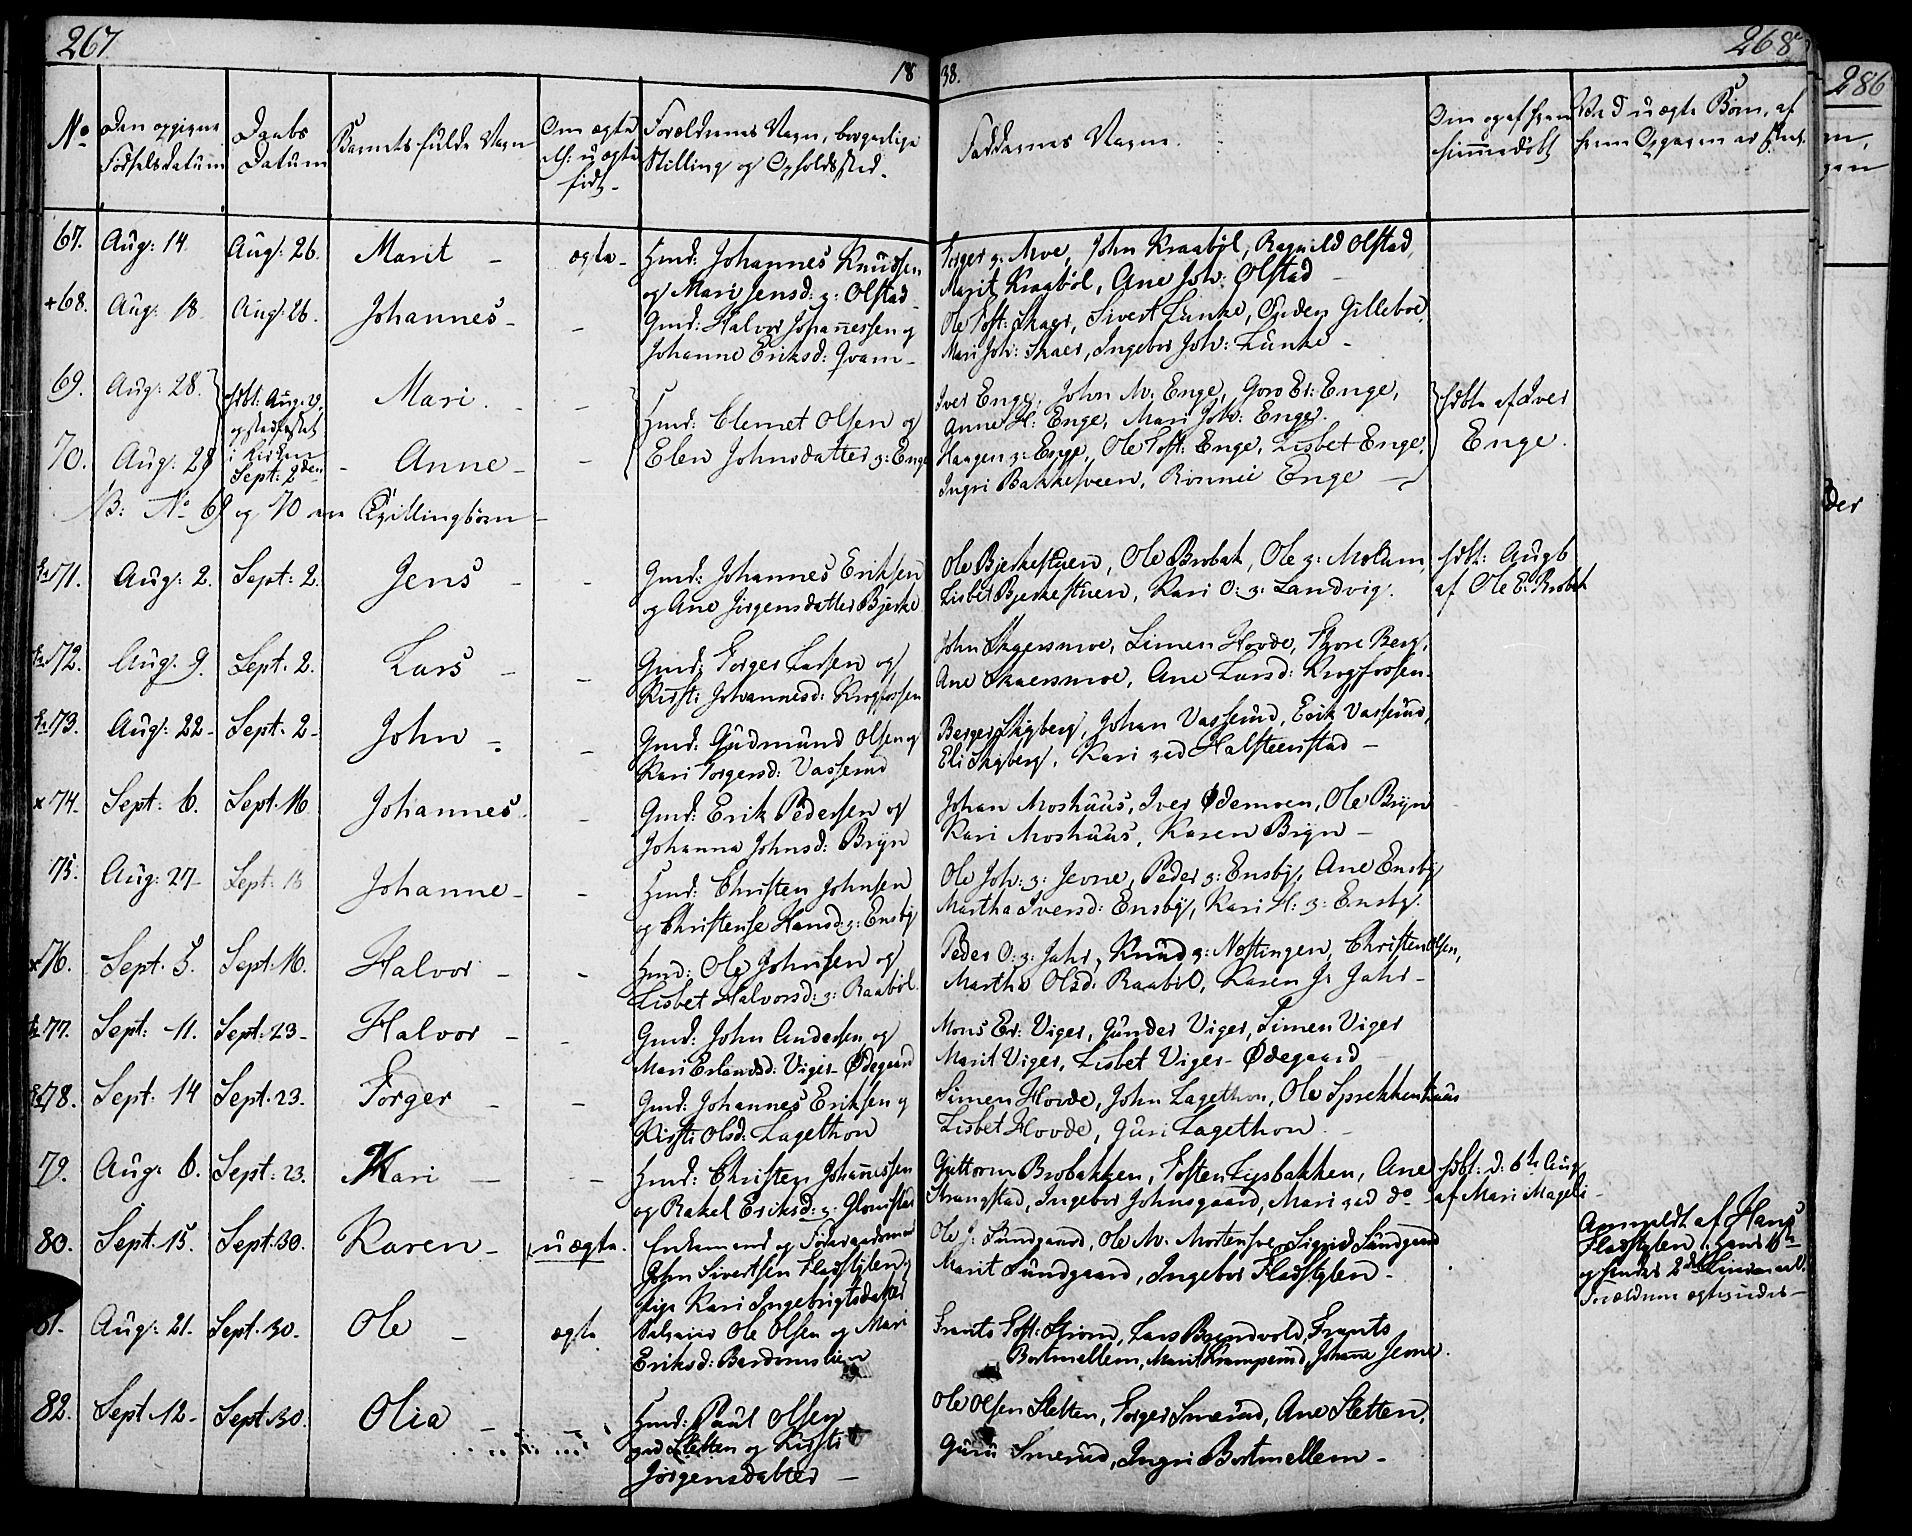 267.
1838.
268
286
No
Den opgivne Fødselsdatum
Daabs Datum
Barnets fulde Navn
Om ægte el: uægte født
Forældrenes Navn, borgerlige Stilling og Opholdssted.
Faddernes Navne.
Om og af hvem hjemmedøbt
67. Aug: 14 Aug: 26. Marit - ægte - Gmd: Johannes Knudsen
og Mari Jensd: g: Olstad
Torger g: Moe, John Kraabøl, Ragnild Olstad,
Marit Kraabøl, Ane Joh: Olstad -
+68. Aug: 18 Aug: 26. Johannes - - Gmd: Halvor Johannessen og
Johanne Eriksd: Qvam -
Ole Toft: Skaer, Sivert Lunke, Enden Gilleboe,
Mari Joh: Skaer, Ingebor Joh: Lunke -
69. Aug: 28. Mari. - -
hdbt: Aug. 29
og stadfæstet
i Kirken
Sept: 2den
70. Aug: 28 - Anne - -
Hmd: Clemet Olsen og
Elen Johnsdatter g: Enge
Iver Enge, John M: Enge, Goro Er: Enge,
Anne H: Enge, Mari Joh: Enge.
Haagen g: Enge, Ole Toft: Enge, Lisbet Enge,
Ingri Bakkesveen, Rønnie Enge -
hdbte af Iver
Enge.
NB: No 69 og 70 ere Tvillingbørn -
71. Aug: 2. Sept: 2. Jens - - Gmd: Johannes Eriksen
og Ane Jørgensdatter Bjerke
Ole Bjerkestuen, Ole Brobak, Ole g: Molum,
Lisbet Bjerkestuen, Kari O: g: Landvig.
hdbt: Aug 6
af Ole E: Brobak
72. Aug. 9. Sept: 2. Lars - - Gmd: Torger Larsen og
Kisti Johannesd: Krogfossen
John Skaersmoe, Simen Hovde, Thore Berg,
Ane Skaersmoe, Ane Larsd: Krogfossen -
73. Aug: 22 - Sept: 2 - John - - Gmd: Gudmund Olsen og
Kari Torgersd: Vasserud
Berger Skyberg, Johan Vasserud, Erik Vasserud,
Eli Skyberg, Kari ved Halsteenstad -
x 74. Sept: 6. Sept. 16. Johannes - Gmd: Erik Pedersen og
Johanna Johnsd: Bryn
Johan Moshuus, Iver Ødemoen, Ole Bryn
Kari Moshuus, Karen Bryn -
75. Aug: 27 - Sept: 16 Johanne - - Hmd: Christen Johnsen
og Christense Hansd: g: Ensby
Ole Joh: g: Jevne, Peder g: Ensby, Ane Ensby
Martha Iversd: Ensby, Kari H: g: Ensby.
x 76. Sept. 5. Sept: 16. Halvor - - Hmd: Ole Johnsen og
Lisbet Halvorsd: g: Raabøl.
Peder O: g: Jahr, Knud g: Nostingen, Christen Olsen,
Martha Olsd: Raabøl, Karen J: Jahr -
77. Sept: 11. Sept: 23 - Halvor - - Gmd: John Andersen og
Mari Erlandsd: Viger - Ødegaard
Mons Er: Viger, Gunder Viger, Simen Viger
Marit Viger, Lisbet Viger - Ødegaard
78. Sept: 14 Sept. 23. Torger - - Gmd: Johannes Eriksen og
Kisti Olsd: Lagethon
Simen Hovde, John Lagethon, Ole Sprekkenhuus
Lisbet Hovde, Guri Lagethon. -
79. Aug: 6. Sept: 23. Kari - - Hmd: Christen Johannessen
og Rakel Eriksd: g: Glomstad
Guttorm Brobakken, Tosten Lysbakken, Ane
Strangstad, Ingebor Johnsgaard, Mari ved do -
hdbt: d: 6te Aug
af Mari Mageli -
80. Sept: 15. Sept: 30. Karen - uægte. Enkemand og
John Sivertsen Fladstylen og
Pige Kari Ingebrigtsdatter
Ole J: Sundgaard, Ole M: Sigrid Sundgaard
Marit Sundgaard, Ingebor Fladstylen -
Anmeldt af Hans
Fladstylen,
81. Aug: 21. Sept. 30. Ole - ægte. Ole Olsen og Mari
Eriksd: Bardomslien
Frants Toft: Strand, Lars Brendvold, Frants
Bortmellem, Marit Kramperud, Johanne Jevne.
82. Sept 12 - Sept 30. Olia - Hmd: Paul Olsen
ved Sletten og Kisti
Jørgensdatter -
Ole Olsen Sletten, Torger Smerud, Ane Sletten,
Guri Smerud, Ingri Bortmellem -